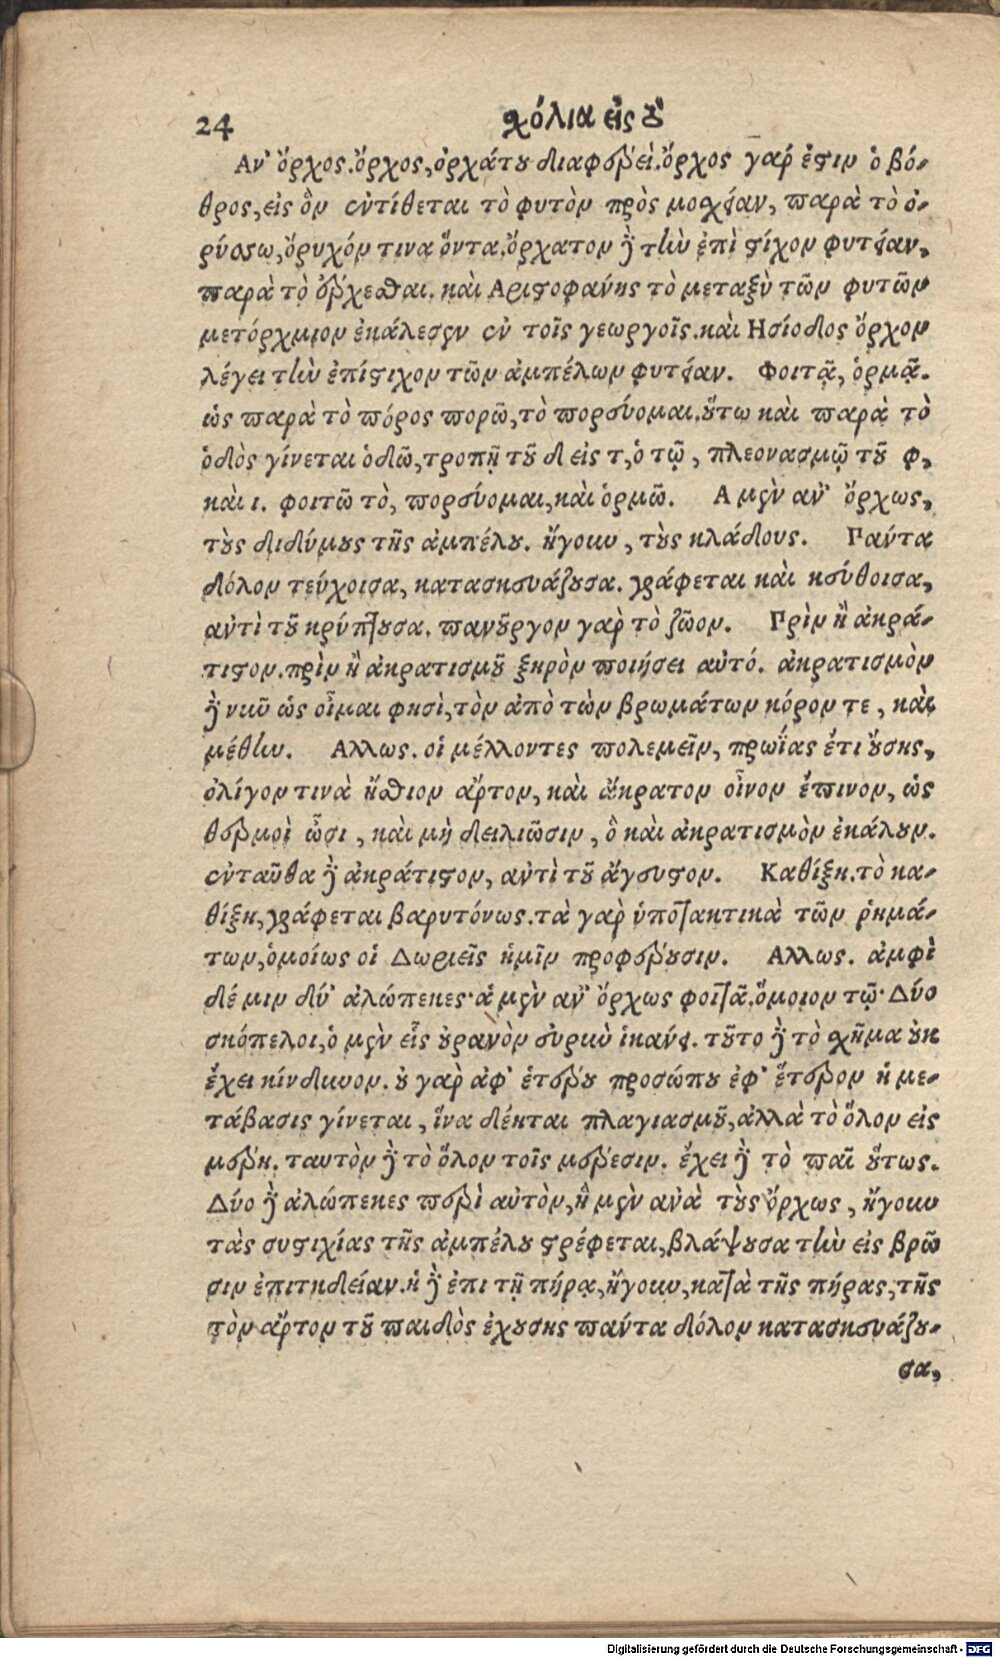 24 σχόλια εἰς τὸ
Αν' ὄρχος. ὄρχος, ὀρχάτου διαφέρει. ὄρχος γάρ ἐστιν ὁ βό-
θρος, εἰς ὃν ἐντίθεται τὸ φυτὸν πρὸς μοσχείαν, παρὰ τὸ ὀ-
ρύσσω, ὄρυχόν τινα ὄντα. ὄρχατον δὲ τὴν ἐπὶ στίχον φυτείαν,
παρὰ τὸ ἔρχεσθαι. καὶ Αριστοφάνης τὸ μεταξὺ τῶν φυτῶν
μετόρχμιον ἐκάλεσεν ἐν τοῖς γεωργοῖς. καὶ Ησίοδος ὄρχον
λέγει τὴν ἐπίστιχον τῶν ἀμπέλων φυτείαν. Φοιτᾷ, ὁρμᾷ.
ὡς παρὰ τὸ πόρος πορῶ, τὸ πορεύομαι. οὕτω καὶ παρὰ τὸ
ὁδὸς γίνεται ὁδῶ, τροπῇ τοῦ δ εἰς τ, ὁτῷ, πλεονασμῷ τοῦ φ,
καὶ ι. φοιτῶ τὸ, πορεύομαι, καὶ ὁρμῶ. Α μὲν αν' ὄρχως,
τοὺς διδύμους τῆς ἀμπέλου. ἤγουν, τοὺς κλάδους. Παντα
δόλον τεύχοισα, κατασκευάζουσα. γράφεται καὶ κεύθοισα,
αὐτὶ τοῦ κρύπτουσα. πανοῦργον γαρ τὸ ζῶον. Πρὶν ἢ ἀκρά-
τιστον. πρὶν ἢ ἀκρατισμοῦ ξηρὸν ποιήσει αὐτό. ἀκρατισμὸν
δὲ νῦν ὡς οἶμαι φησὶ, τὸν ἀπὸ τῶν βρωμάτων κόρον τε, καὶ
μέθην. Αλλως. οἱ μέλλοντες πολεμεῖν, πρωΐας ἔτι οὔσης,
ὀλίγον τινὰ ἤσθιον ἄρτον, καὶ ἄκρατον οἶνον ἔπινον, ὡς
θερμοὶ ὦσι, καὶ μὴ δειλιῶσιν, ὃ καὶ ἀκρατισμὸν ἐκάλουν.
ἐνταῦθα δὲ ἀκράτιστον, αὐτὶ τοῦ ἄγευστον. Καθίξη. τὸ κα-
θίξη, γράφεται βαρυτόνως. τὰ γαρ ὑποτακτικὰ τῶν ῥημά-
των, ὁμοίως οἱ Δωριεῖς ἡμῖν προφέρουσιν. Αλλως. ἀμφὶ
δέ μιν δύ' ἀλώπεκες· ἁ μὲν αν' ὄρχως φοιτᾶ. ὅμοιον τῷ· Δύο
σκόπελοι, ὁ μὲν εἰς οὐρανὸν εὐρὺν ἱκάνει. τοῦτο δὲ τὸ σχῆμα οὐκ
ἔχει κίνδυνον. οὐ γαρ ἀφ' ἑτέρου προσώπου ἐφ' ἕτερον ἡ με-
τάβασις γίνεται, ἵνα δέηται πλαγιασμοῦ, ἀλλὰ τὸ ὅλον εἰς
μέρη. ταυτὸν δὲ τὸ ὅλον τοῖς μέρεσιν. ἔχει δὲ τὸ πᾶν οὕτως.
Δύο δὲ ἀλώπεκες περὶ αὐτὸν, ἢ μὲν ἀνὰ τοὺς ὄρχως, ἤγουν
τὰς συστιχίας τῆς ἀμπέλου στρέφεται, βλάψουσα τὴν εἰς βρῶ
σιν ἐπιτηδείαν. ἡ δὲ ἐπι τῇ πήρᾳ, ἤγουν, κατὰ τῆς πήρας, τῆς
τὸν ἄρτον τοῦ παιδὸς ἐχούσης παντα δόλον κατασκευάζου-
σα,
Digitalisierung gefördert durch die Deutsche Forschungsgemeinschaft - DFG